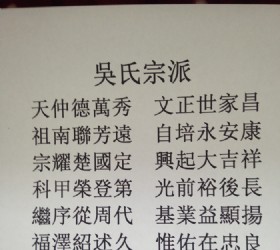 吳氏宗派
天仲德萬秀 文正世家昌
祖南聯芳遠 自培永安康
宗耀楚國定 興起大吉祥
科甲榮登第 光前裕後長
繼序從周代 基業益顯揚
福澤紹述久 惟佑在忠良